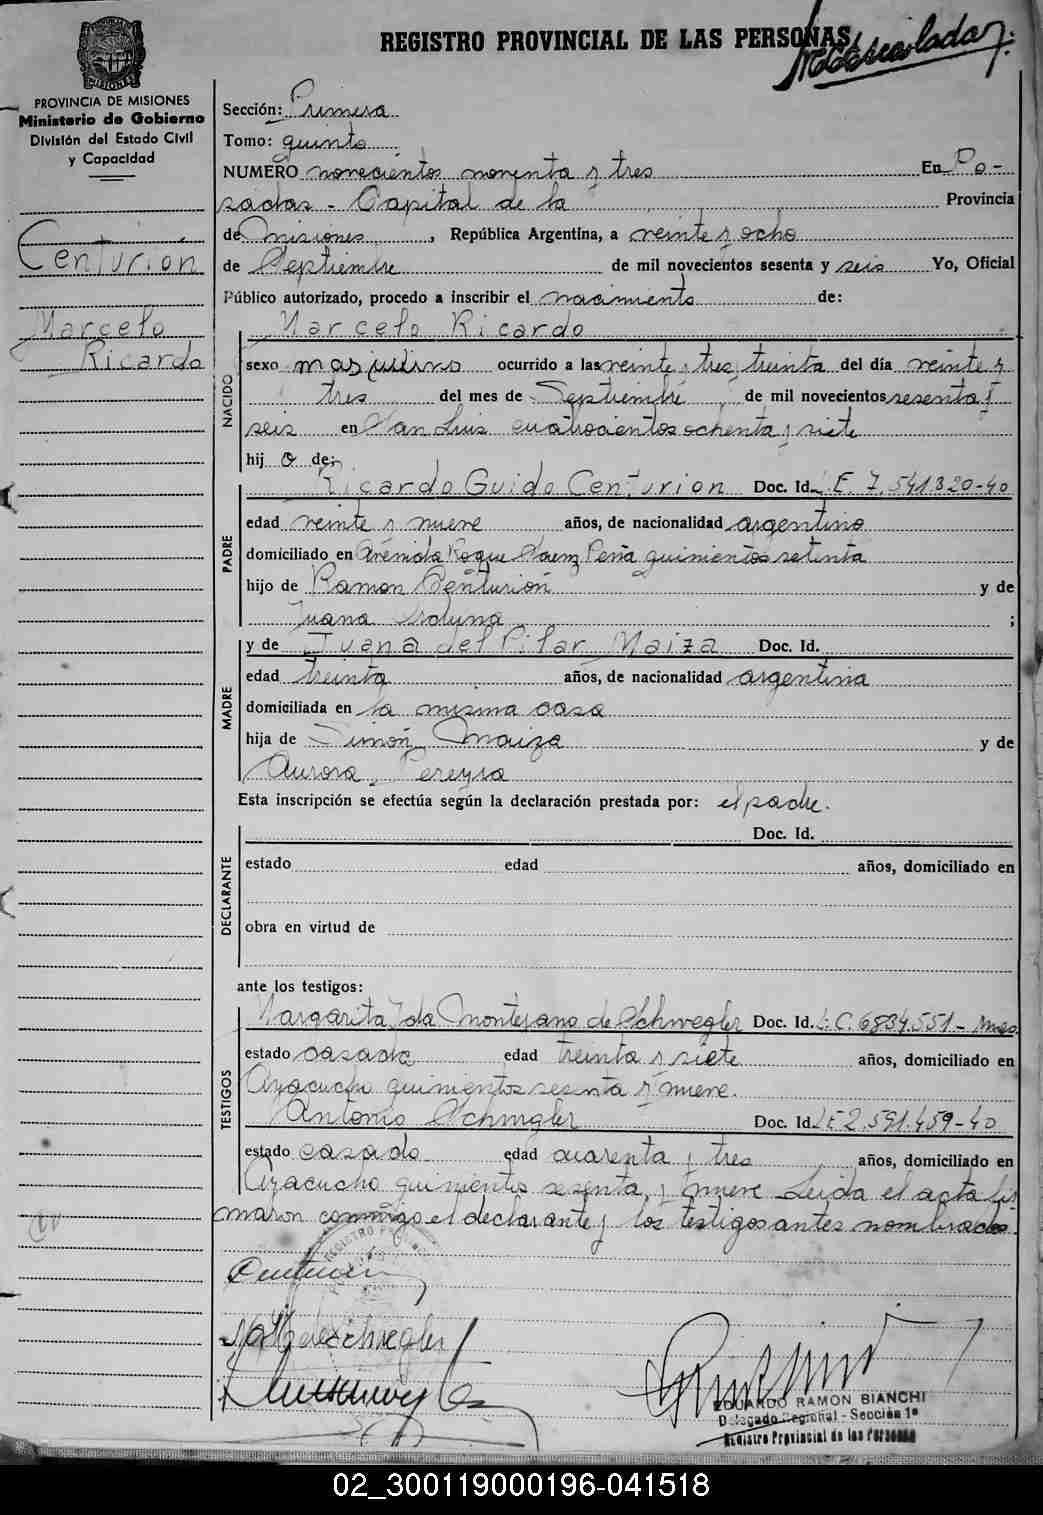 REGISTRO PROVINCIAL DE LAS PERSONAS
PROVINCIA DE MISIONES
Ministerio de Gobierno
División del Estado Civil
y Capacidad
Centurión
Marcelo
Ricardo
Sección: Primera
Tomo: quinto
NUMERO novecientos noventa y tres En Po-
sadas - Capital de la Provincia
de Misiones, República Argentina, a veinte y ocho
de Septiembre de mil novecientos sesenta y seis Yo, Oficial
Público autorizado, procedo a inscribir el nacimiento de:
NACIDO
Marcelo Ricardo
sexo masculino ocurrido a las veinte y tres, treinta del día veinte y
tres del mes de Septiembre de mil novecientos sesenta y
seis en San Luis cuatrocientos ochenta y siete
hij o de:
PADRE
Ricardo Guido Centurion Doc. Id. L E. 7.541320-40
edad veinte y nueve años, de nacionalidad argentino
domiciliado en Avenida Roque Saenz Peña quinientos setenta
hijo de Ramon Centurión y de
Juana ;
MADRE
y de Juana del Pilar Maiza Doc. Id.
edad treinta años, de nacionalidad argentina
domiciliada en la misma casa
hija de Simón Maiza y de
Aurora Pereyra
Esta inscripción se efectúa según la declaración prestada por: el padre.
DECLARANTE
Doc. Id.
estado edad años, domiciliado en
obra en virtud de
ante los testigos:
TESTIGOS
Margarita Ida Montejano de Schwegler Doc. Id. L.C. 6834.551-
estado casada edad treinta y siete años, domiciliado en
Ayacucho quinientos sesenta y nueve.
Antonio Schwegler Doc. Id. L E 2.591.459-40
estado casado edad cuarenta y tres años, domiciliado en
Ayacucho quinientos sesenta y nueve Leida el acta fir
maron conmigo el declarante y los testigos antes nombrados.
EDUARDO RAMON BIANCHI
Delegado Regional - Sección 1ª
Registro Provincial de las Personas
02_300119000196-041518